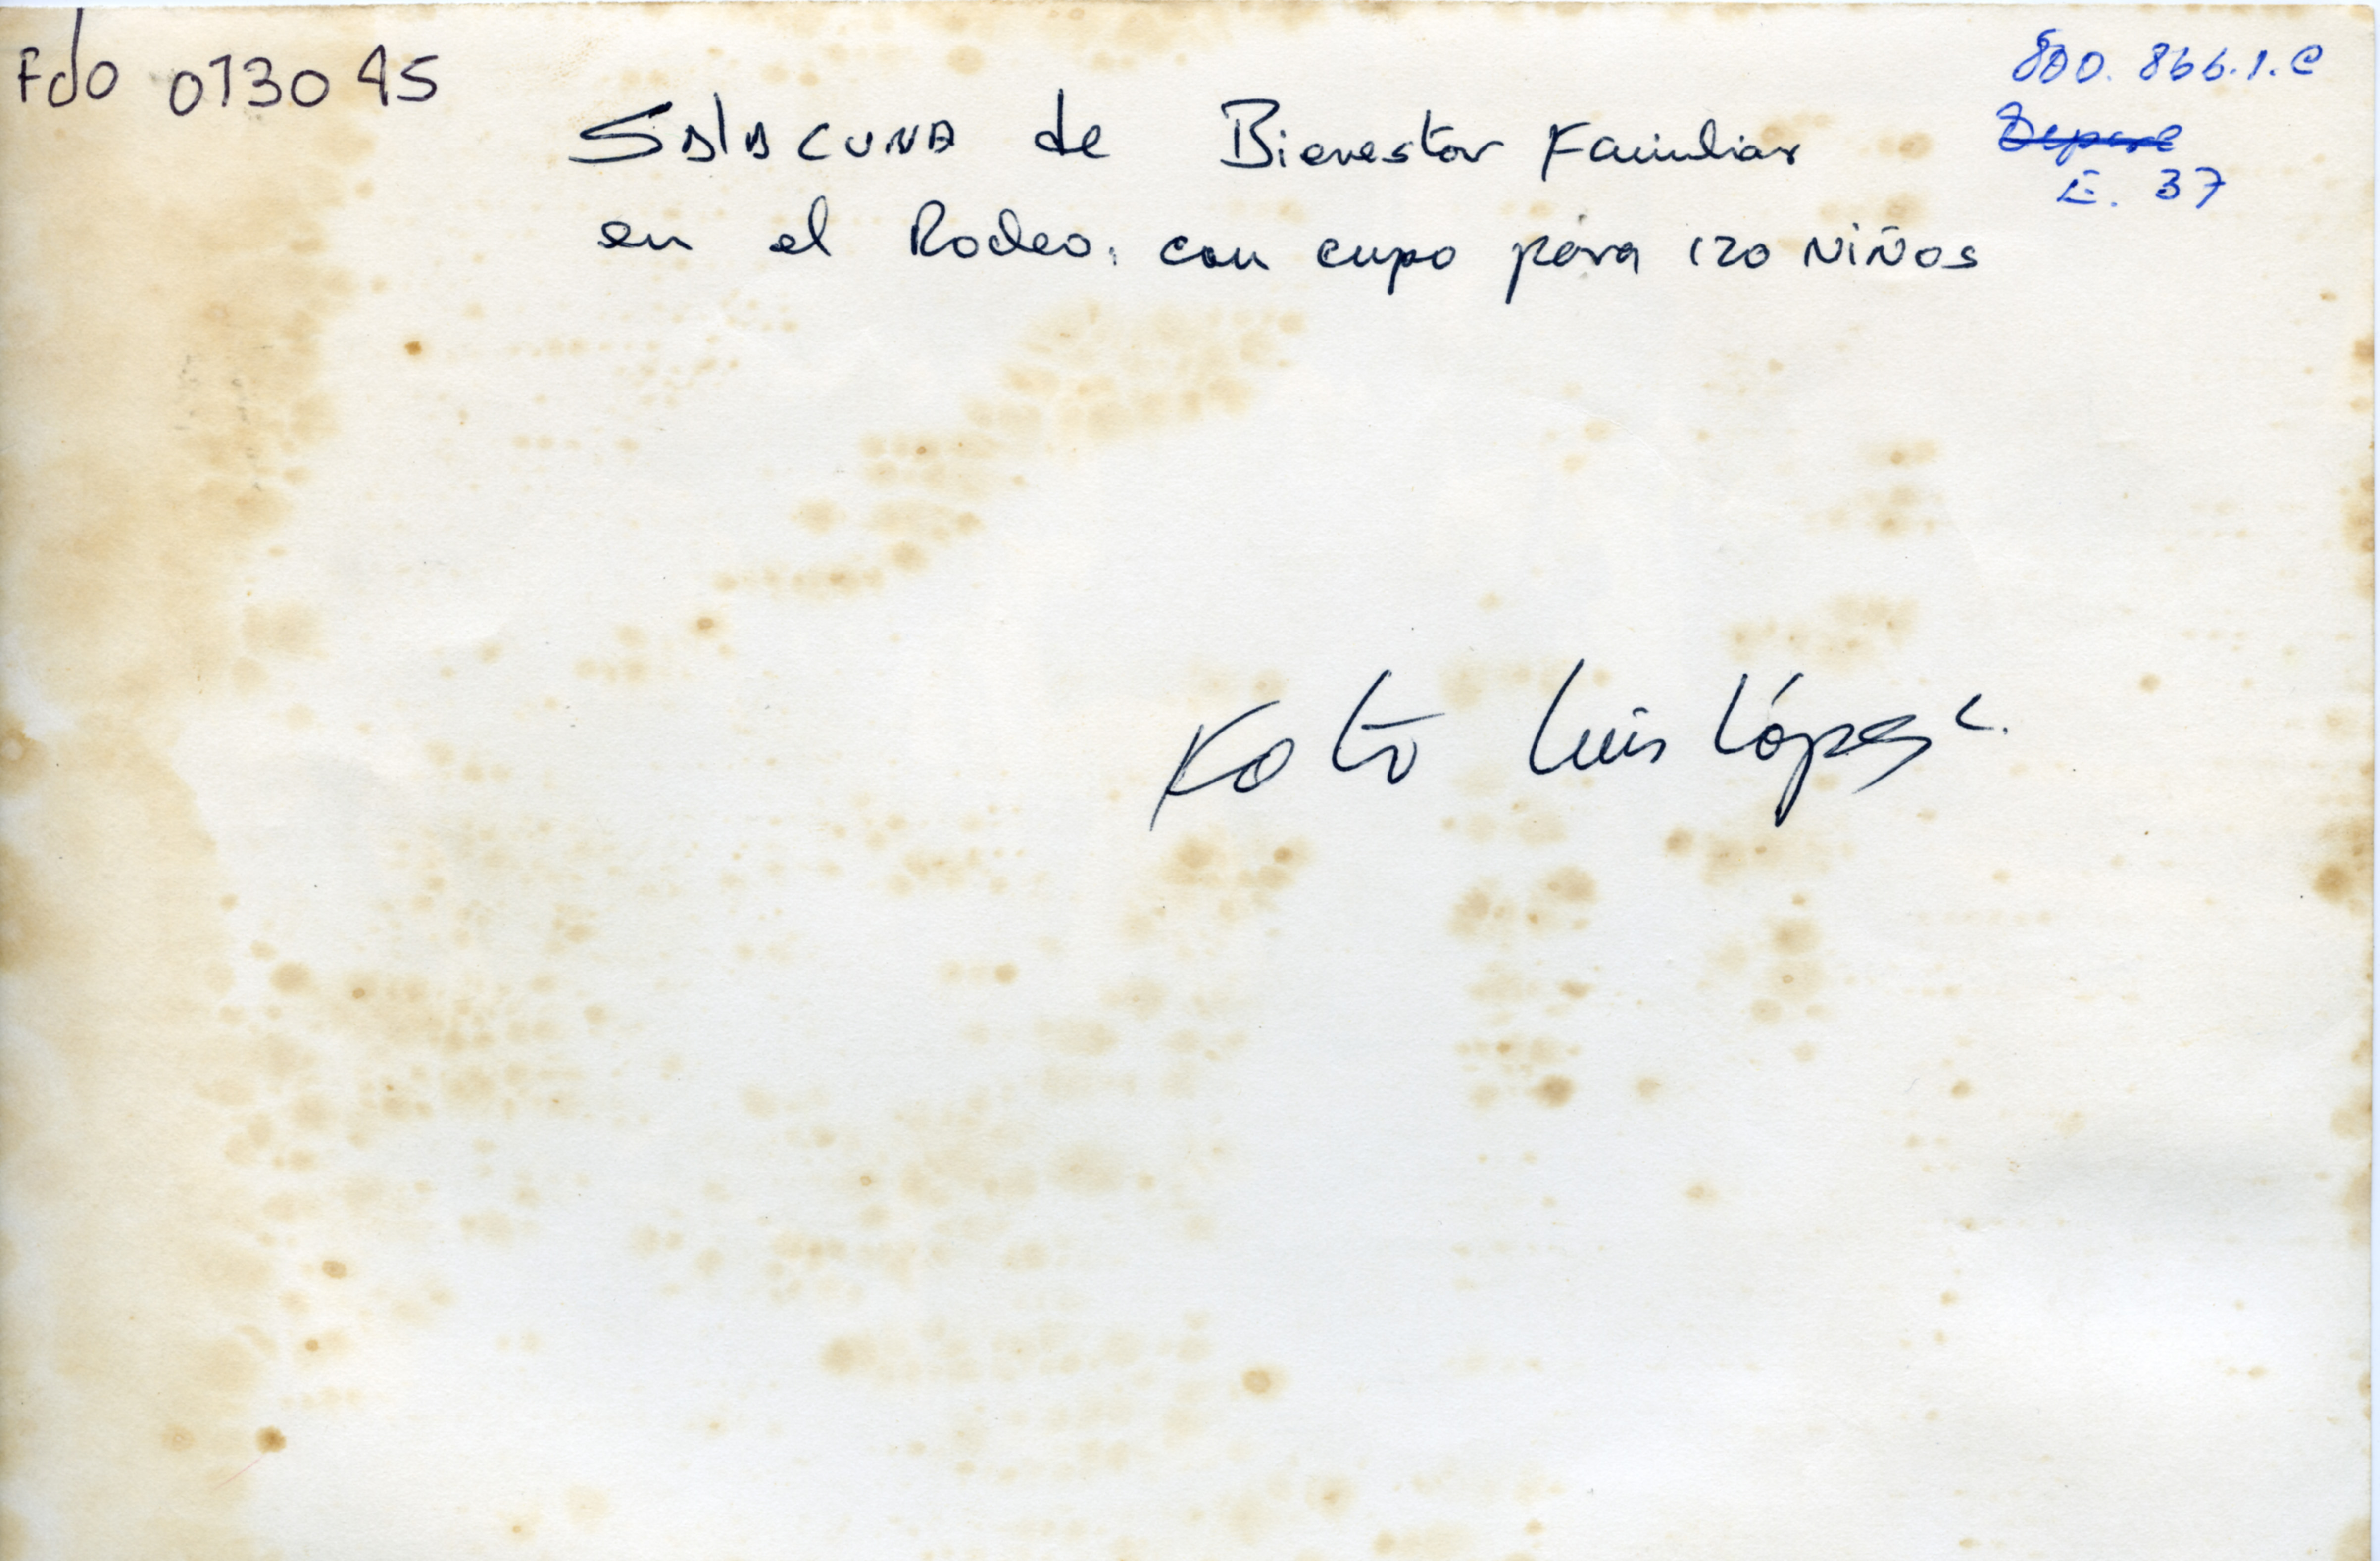 Fdo 013045
800.866.1.C
E. 37
SalaCUNA de Bienestar Familiar
en el Rodeo. con cupo para 120 NiÑos
Foto Luis López C.